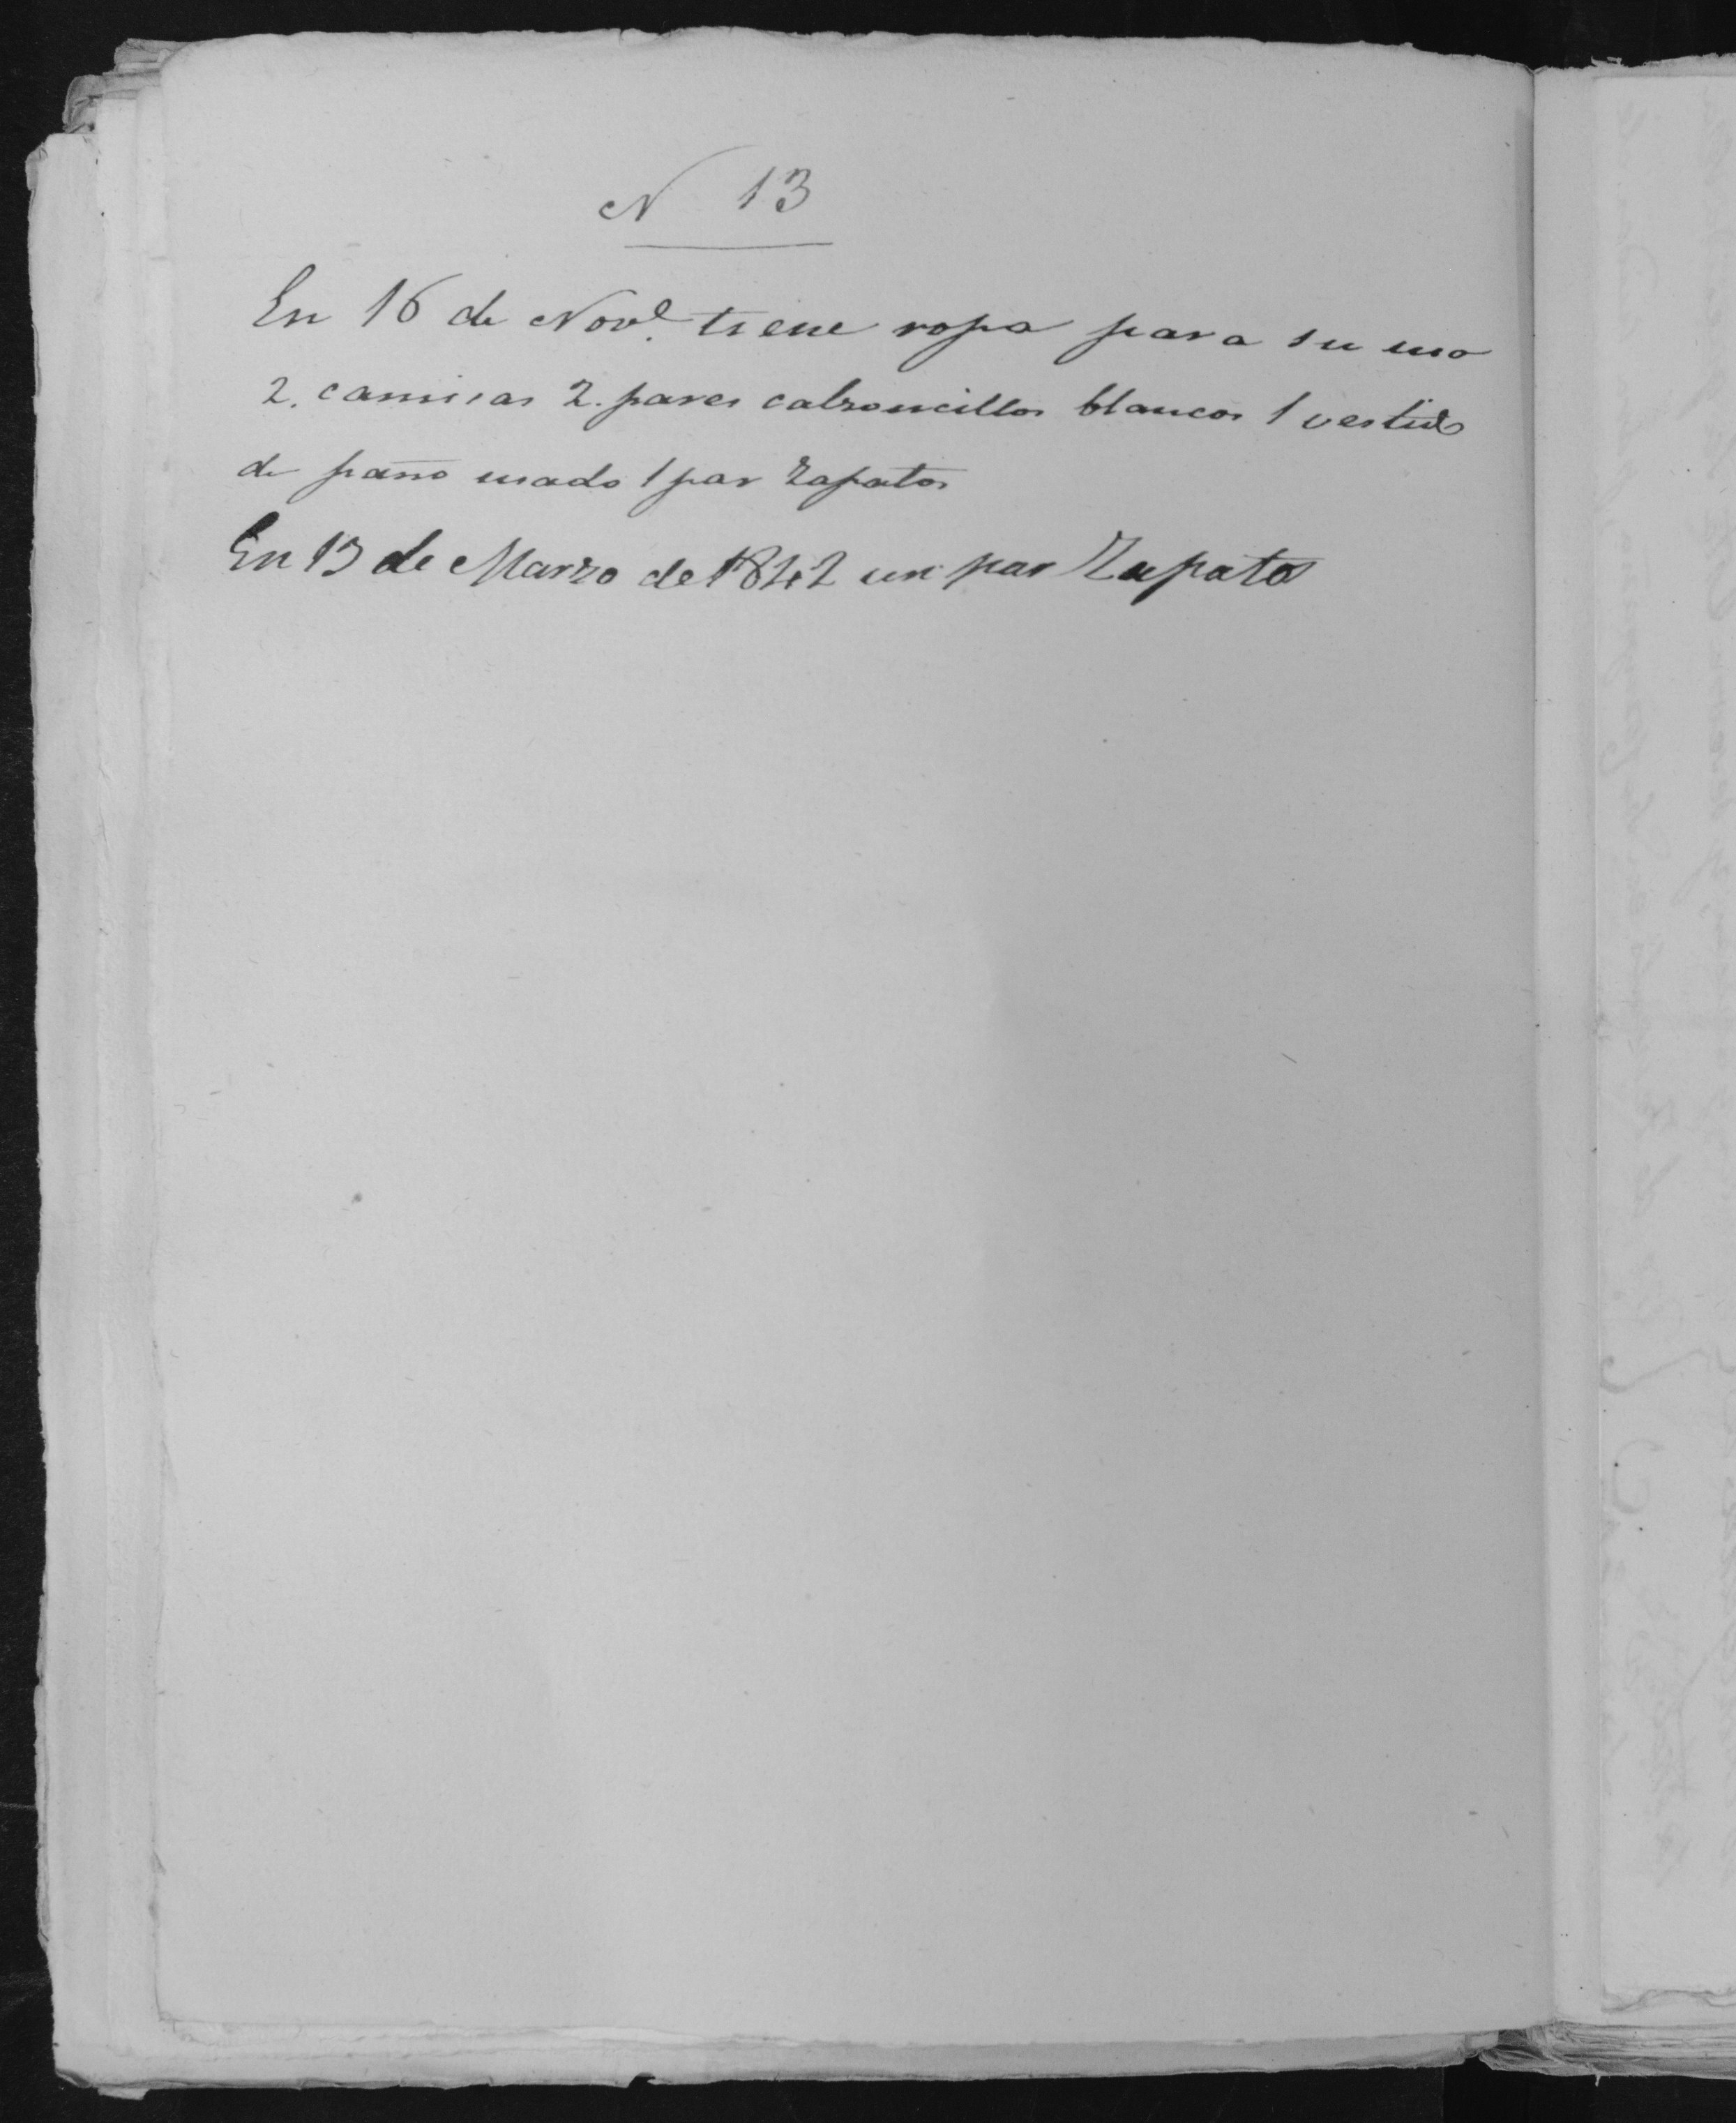 N 13
En 16 de Nove. tiene ropa para su uso
2. camisas 2. pares calzoncillos blancos 1 vestido
de paño usado 1 par zapatos
En 13 de Marzo de 1842 un par Zapatos